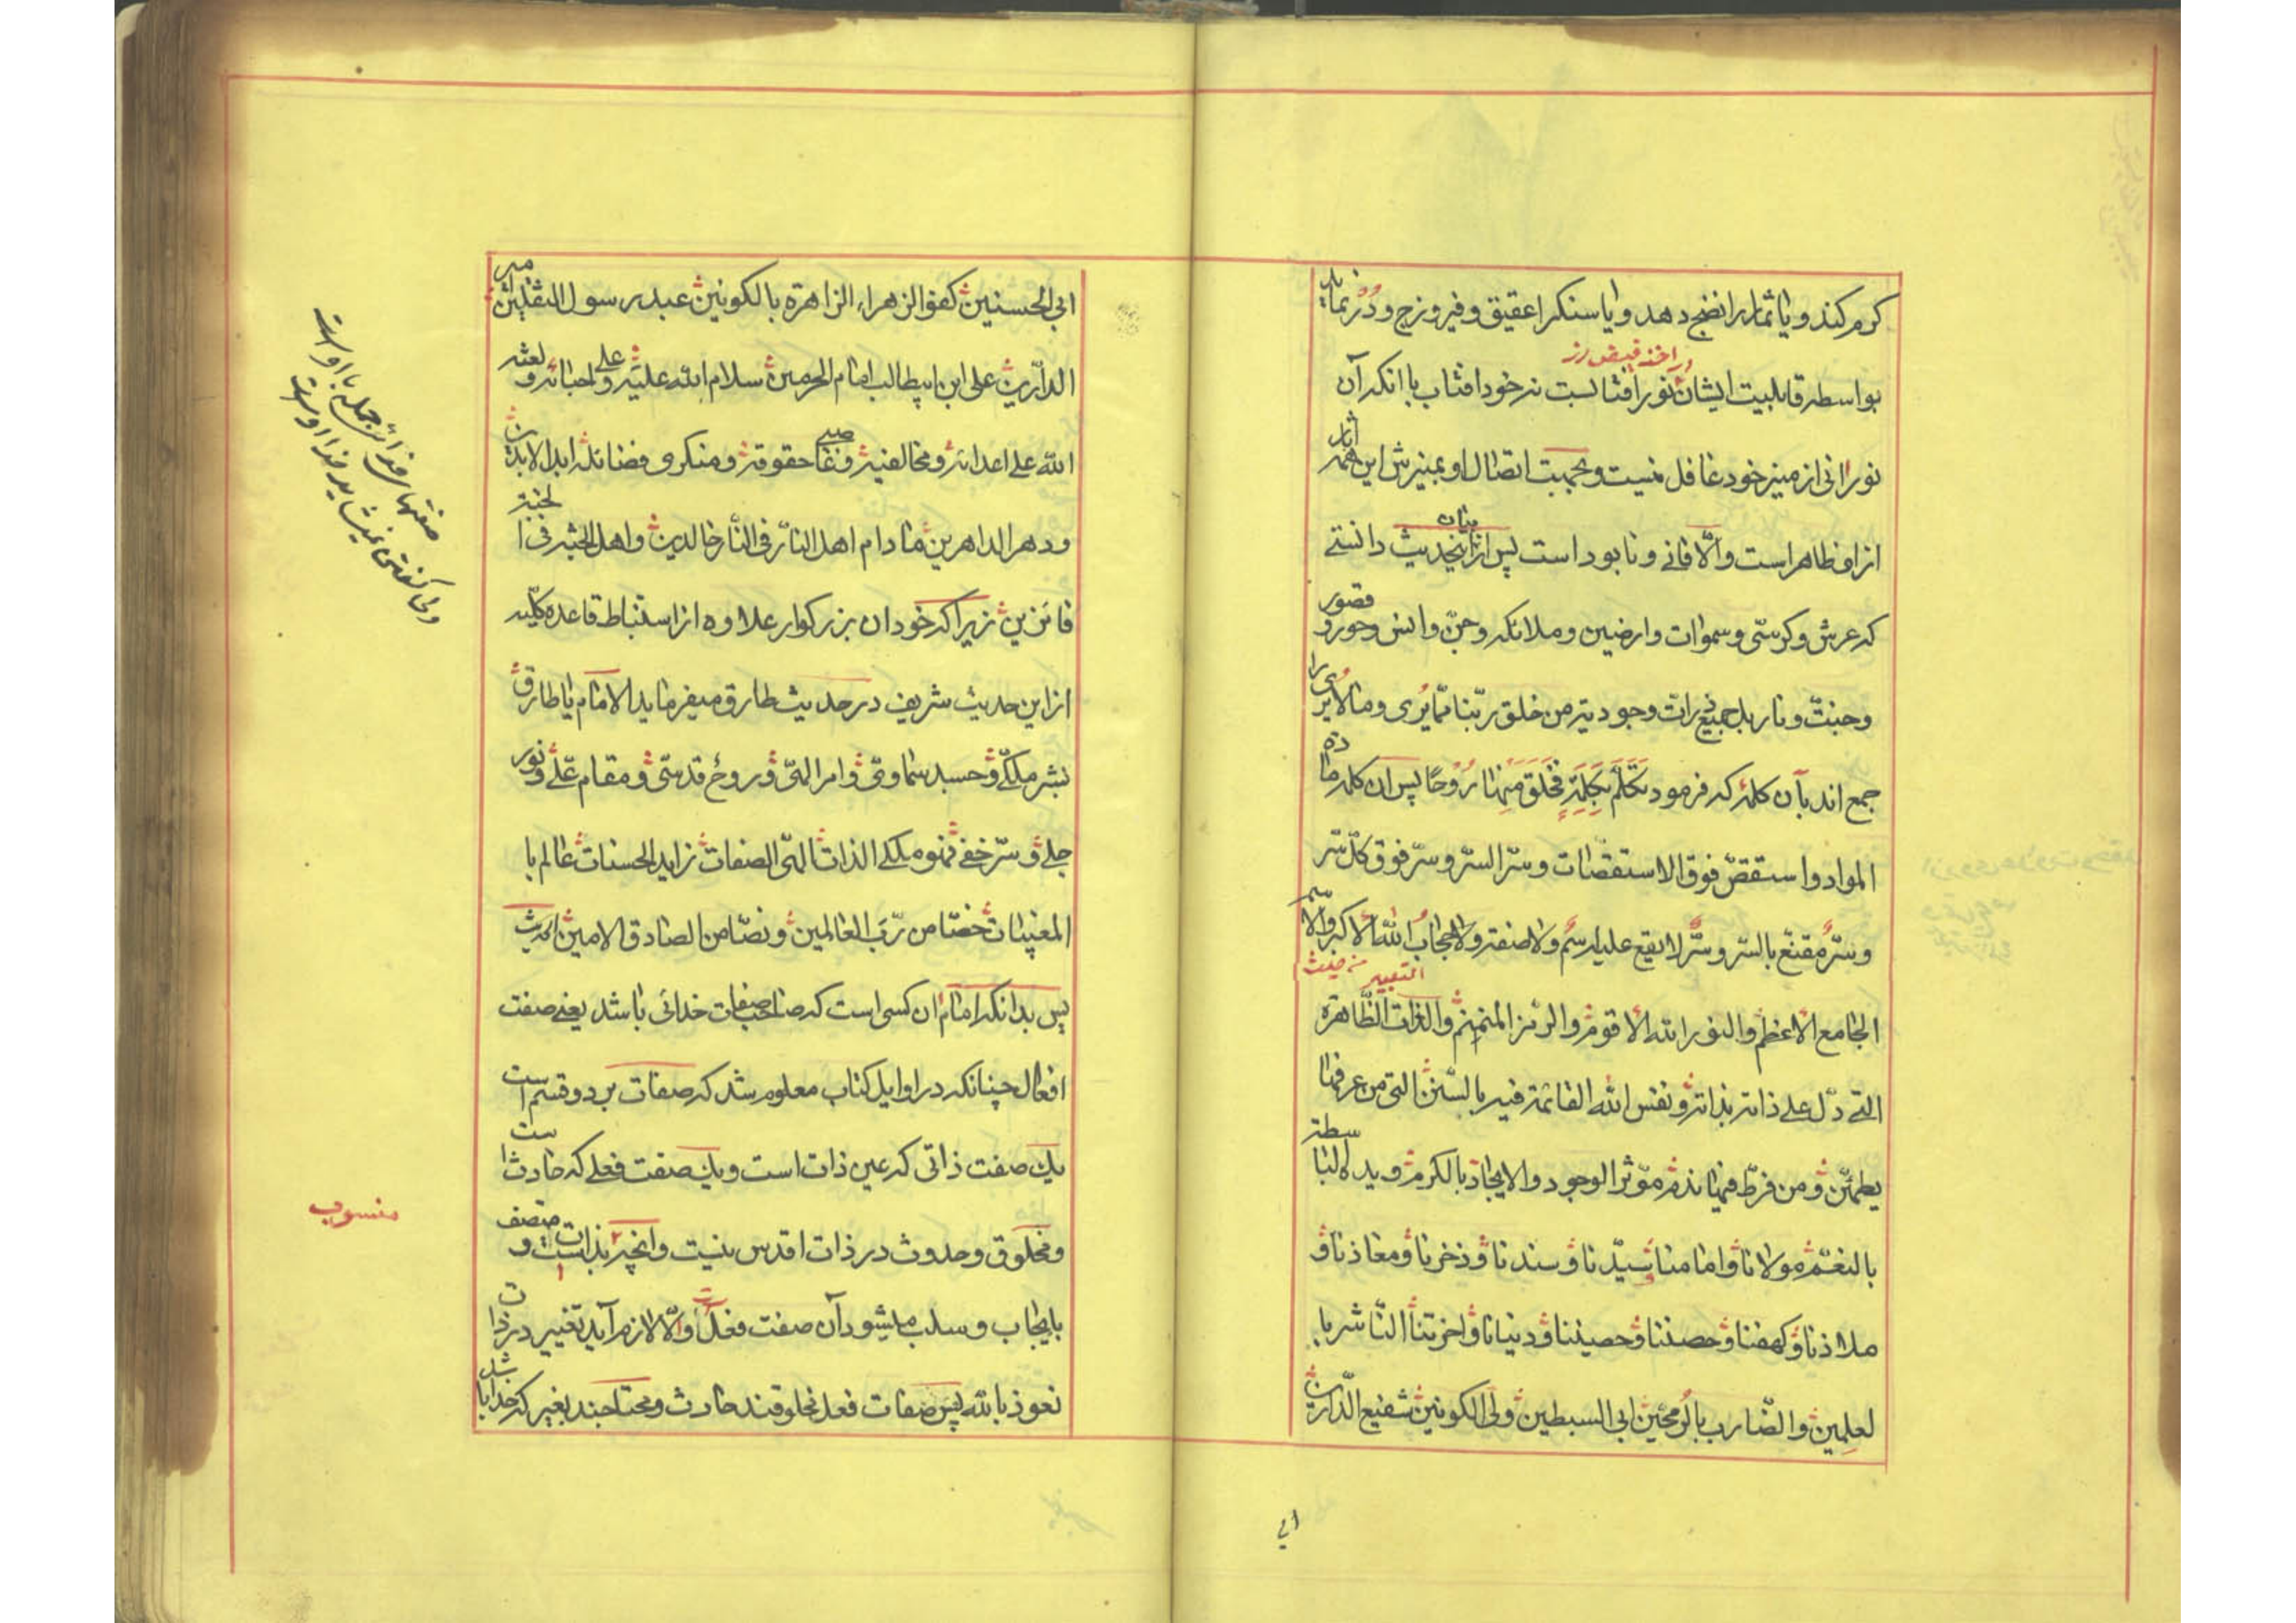 کرم کند و یا ثمار را نضج دهد و یا سنگرا عقیق و فیروزج و دُرّ نماید
در اخذ فیض از
بواسطه قابلیت ایشان نور آفتابست نه خود افتاب با انکه آن
نورانی از میز خود غافل نیست و بجهت اتصال او بمنیرش این همه اثار
ازاو ظاهر است و الّا فانی و نابود است پس از بیان اینحدیث دانستی
که عرش و کرسّی و سموات و ارضین و ملائکه و جنّ و انس و حور و قصور
و جنّت و نار بل جمیع ذرات وجودیّه من خلق ربّنا ممّا یُری و ما لا یُری را
جمع اند بآن کلمهٔ که فرمود تَکَلَّمَ بِکَلِمَةٍ فَخَلَقَ مِنهٰا رُوْحًا پس ان کلمه مادّه
المواد و استقصّ فوق الاستقصّات و سرّ السرّ و سرّ فوق کلّ سّر
و سرّ مقنّع بالسّر و سرّ لا یقع علیه اسم و لا صفة و لا حجاب الله الاکبر و الاسم
التعبیر من حیث
الجامع الاعظم و النور الله الاقوم و الرمز المنمنم و الذات الظّاهرة
التّی دلّ علی ذاته بذاته و نفس الله القائمة فیه بالسّنن التی من عرفها
یطمئنّ و من فرّط فیها یندم مؤثر الوجود و الایجاد بالکرم و یده الباسطة
بالنعم مولانا و امامنا و سیّدنا و سندنا و ذخرنا و معاذنا و
ملاذنا و کهفنا و حصننا و حصیننا و دنیانا و اخرتنا الناشر با
لعلمین و الضّارب بالرمحین ابی السبطین ولی الکونین شفیع الدّارین
ابی
ابی الحسنین کفو الزهراء الزاهرة بالکونین عبد رسول الثقلین میر
الدارین علی ابن ابیطالب امام الحرمین سلام الله علیه و علی احبائه و لعنة
الله علی اعدائه و مخالفیه و غاصبی حقوقه و منکری فضائله ابد الابدین
و دهر الداهرین ما دام اهل النار فی النار خالدین و اهل الجنة فی الجنة
فائزین زیرا که خود ان بزرگوار علاوه از استنباط قاعده کلّیه
از این حدیث شریف در حدیث طارق میفرماید الامام یا طارق
بشر ملکی و جسد سماوی و امر الهی و روح قدسّی و مقام علّی و نور
جلی و سرّ خفی فهو ملکی الذات الهی الصفات زاید الحسنات عالم با
المغیبات خصّا من ربّ العالمین و نصّا من الصادق الامین الحدیث
پس بدانکه امام ان کسی است که صاحب صفات خدائی باشد یعنی صفت
افعال چنانکه در اوایل کتاب معلوم شد که صفات بر دو قسم است
یک صفت ذاتی که عین ذات است و یک صفت فعلی که حادث است
و مخلوق و حدوث در ذات اقدس نیست و انچیز بذات متصف است و
بایجاب و سلب میشود آن صفت فعل است و الّا لازم آید تغییر در ذات
نعوذ بالله پس صفات فعل مخلوقند حادث و محتاجند بغیر که خدا باشد
صفتهای خدائی جمله با اوست
ولی گفتن نمیشاید خدا اوست
منسوب